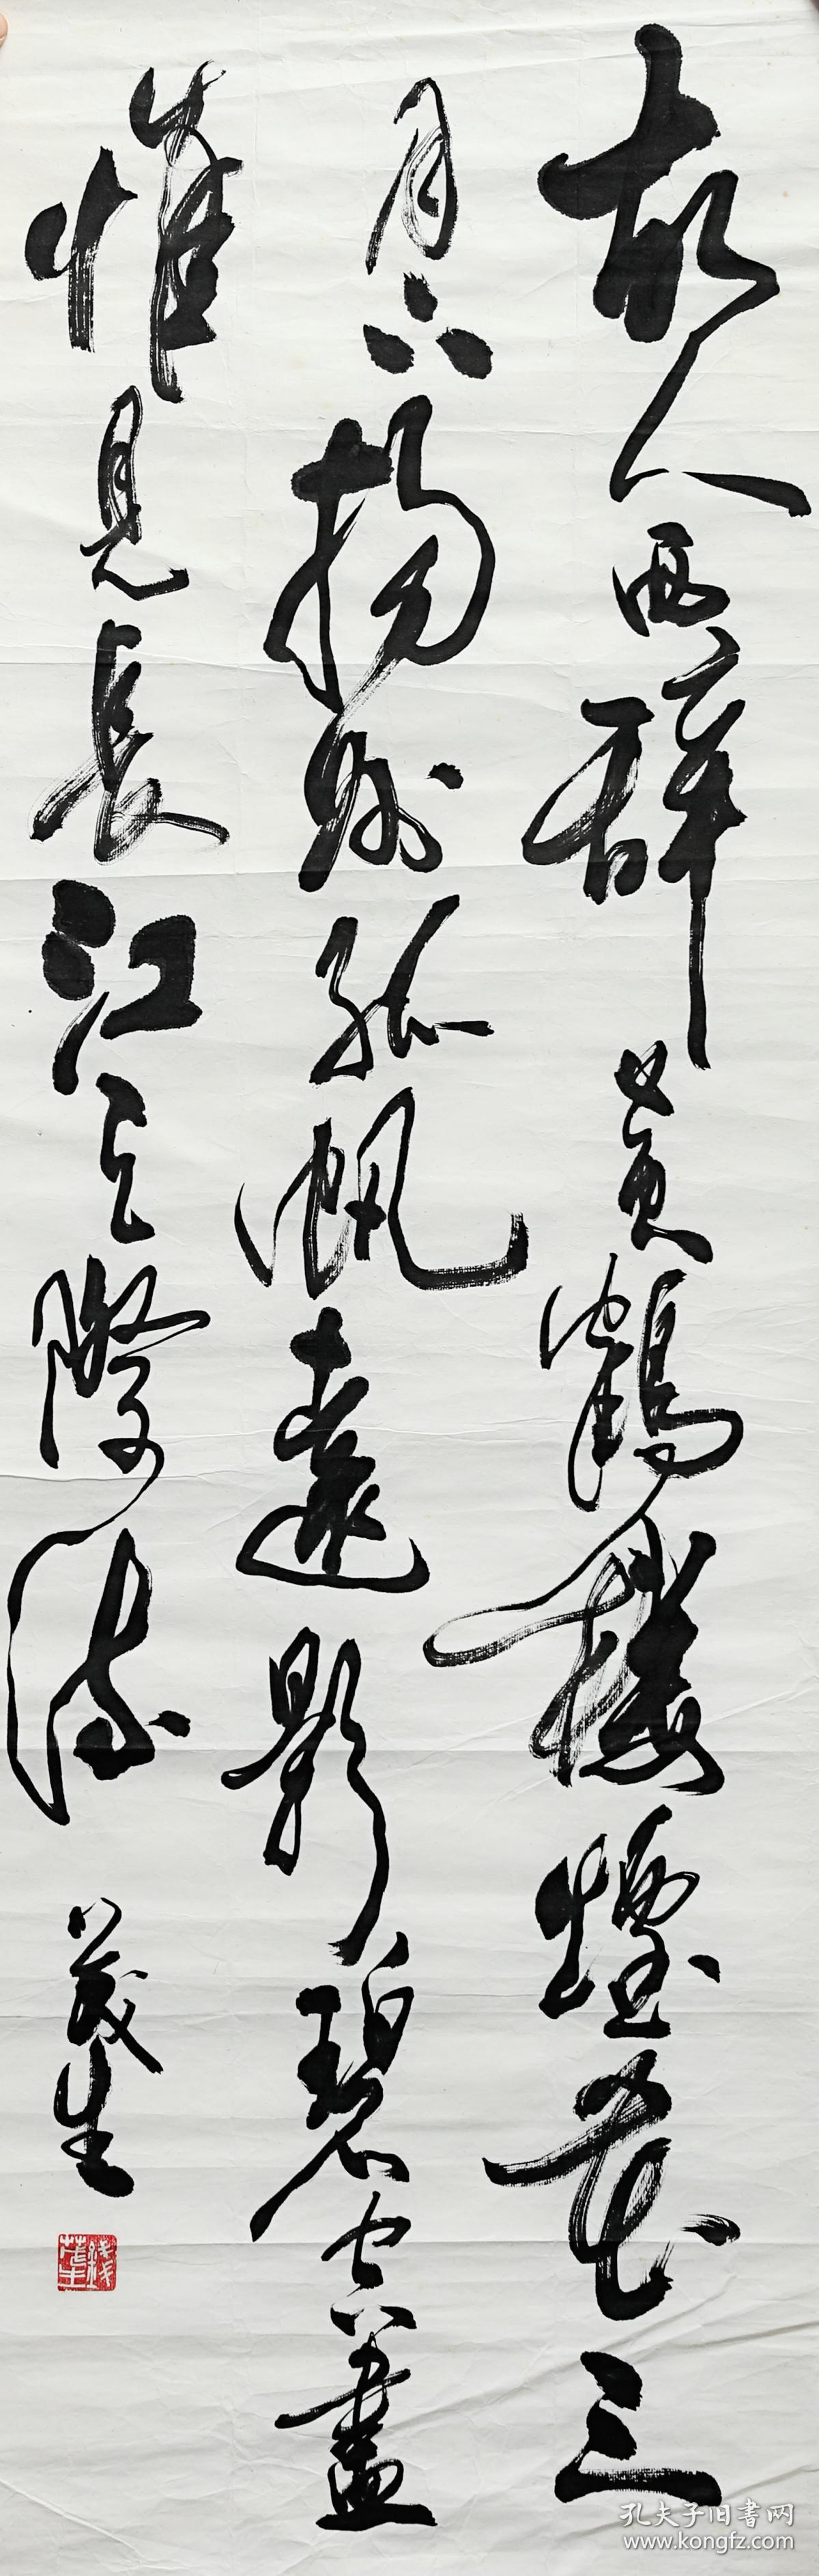 故人西辞黄鶴楼煙花三
月下揚州孤帆遠影碧空盡
惟見長江天際流
茂生
錢茂生
孔夫子旧書网
www.kongfz.com